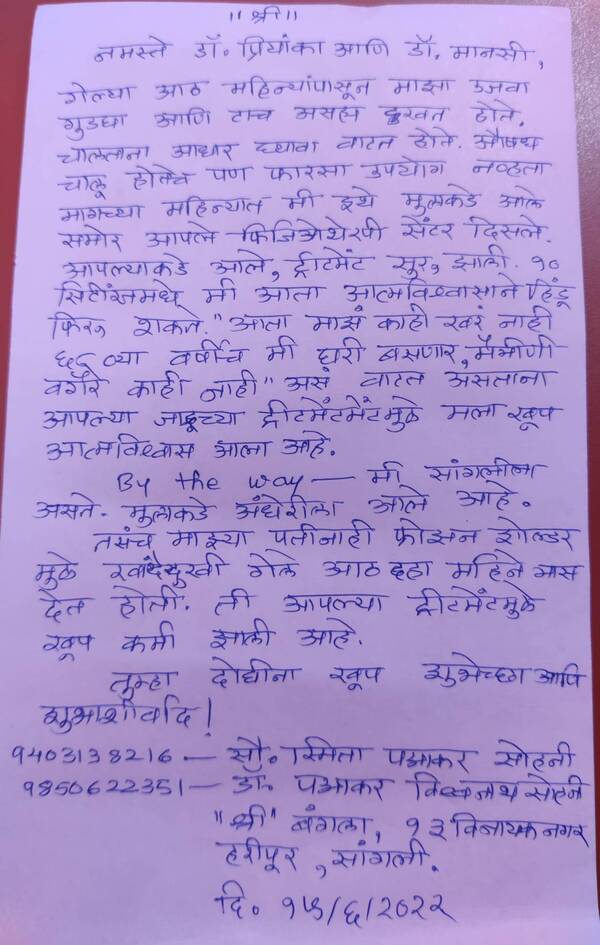 ॥ श्री ॥
नमस्ते डॉ. प्रियांका आणि डॉ. मानसी,
गेल्या आठ महिन्यांपासून माझा उजवा
गुडघा आणि टाच असह्य दुखत होते.
चालताना आधार घ्यावा वाटत होते. औषध
चालू होतेच पण फारसा उपयोग नव्हता
मागच्या महिन्यात मी इथे मुलाकडे आले
समोर आपले फिजिओथेरपी सेंटर दिसले.
आपल्याकडे आले, ट्रीटमेंट सुरु झाली. १०
सिटींग्जमधे मी आता आत्मविश्वासाने हिंडू
फिरु शकते. "आता माझं काही खरं नाही
६६ व्या वर्षीच मी घरी बसणार, मैत्रीणी
वगैरे काही नाही" असं वाटत असताना
आपल्या जादूच्या ट्रीटमेंटमेंटमुळे मला खूप
आत्मविश्वास आला आहे.
By the way — मी सांगलीला
असते. मुलाकडे अंधेरीला आले आहे.
तसंच माझ्या पतींनाही फ्रोझन शोल्डर
मुळे खांदेदुखी गेले आठ दहा महिने त्रास
देत होती. ती आपल्या ट्रीटमेंटमुळे
खूप कमी झाली आहे.
तुम्हा दोघींना खूप शुभेच्छा आणि
शुभाशीर्वाद!
9403138216 — सौ. स्मिता पद्माकर सोहनी
9850622351 — डॉ. पद्माकर विश्वनाथ सोहनी
"श्री" बंगला, १३ विनायकनगर
हरीपूर, सांगली.
दि. १५/६/२०२२